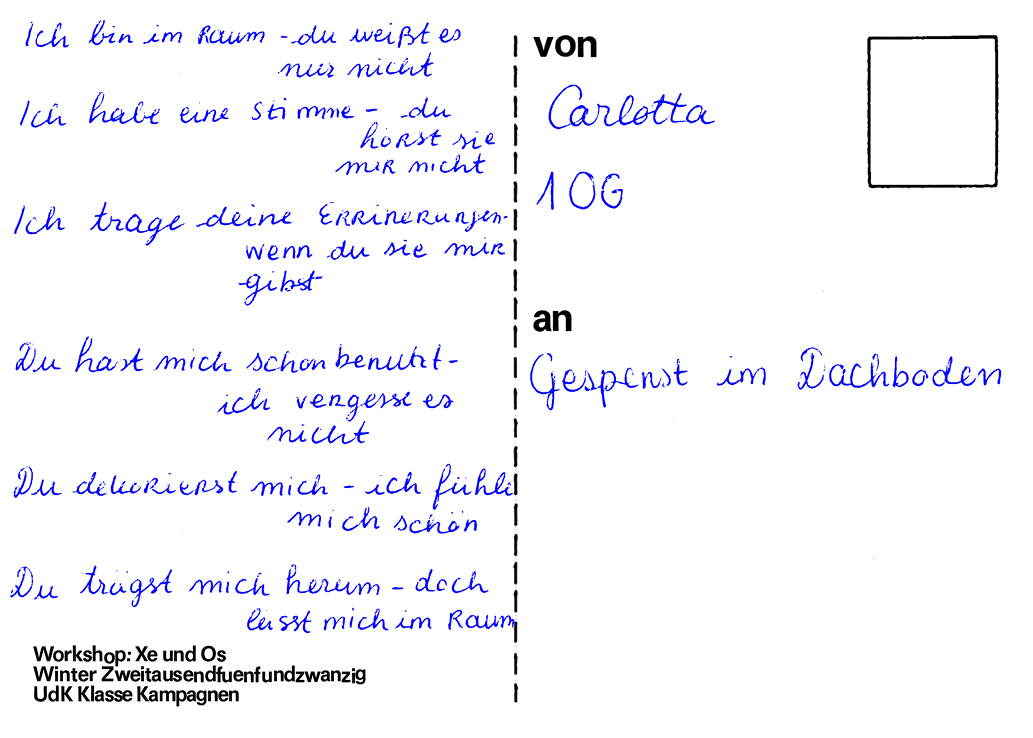 Ich bin im Raum - du weißt es
nur nicht
Ich habe eine Stimme - du
hörst sie
mir nicht
Ich trage deine Errinerungen-
wenn du sie mir
gibst
Du hast mich schon benutzt-
ich vergesse es
nicht
Du dekorierst mich - ich fühle
mich schön
Du trägst mich herum - doch
lässt mich im Raum
Workshop: Xe und Os
Winter Zweitausendfuenfundzwanzig
UdK Klasse Kampagnen
von
Carlotta
1 OG
an
Gespenst im Dachboden